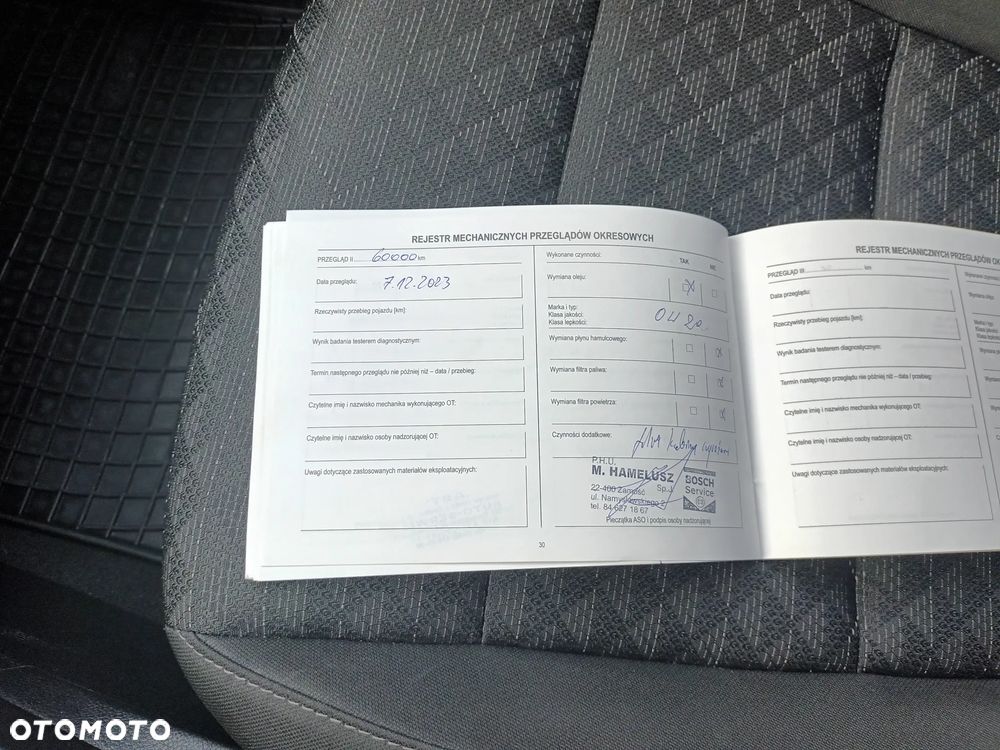 REJESTR MECHANICZNYCH PRZEGLĄDÓW OKRESOWYCH
PRZEGLĄD II 60000 km
Data przeglądu: 7.12.2023
Rzeczywisty przebieg pojazdu [km]:
Wynik badania testerem diagnostycznym:
Termin następnego przeglądu nie później niż – data / przebieg:
Czytelne imię i nazwisko mechanika wykonującego OT:
Czytelne imię i nazwisko osoby nadzorującej OT:
Uwagi dotyczące zastosowanych materiałów eksploatacyjnych:
Wykonane czynności: TAK NIE
Wymiana oleju:
Marka i typ:
Klasa jakości:
Klasa lepkości:
Wymiana płynu hamulcowego:
Wymiana filtra paliwa:
Wymiana filtra powietrza:
Czynności dodatkowe:
P.H.U.
M. HAMELUSZ
22-400 Zamość Sp.J.
ul. Namysłowskiego 2
tel. 84 627 18 67
BOSCH
Service
Pieczątka ASO i podpis osoby nadzorującej
30
REJESTR MECHANICZNYCH PRZEGLĄDÓW
PRZEGLĄD III km
Data przeglądu:
Rzeczywisty przebieg pojazdu [km]:
Wynik badania testerem diagnostycznym:
Termin następnego przeglądu nie później niż – data / przebieg:
Czytelne imię i nazwisko mechanika wykonującego OT:
Czytelne imię i nazwisko osoby nadzorującej OT:
Uwagi dotyczące zastosowanych materiałów eksploatacyjnych:
Wymiana oleju
Marka i typ:
OTOMOTO